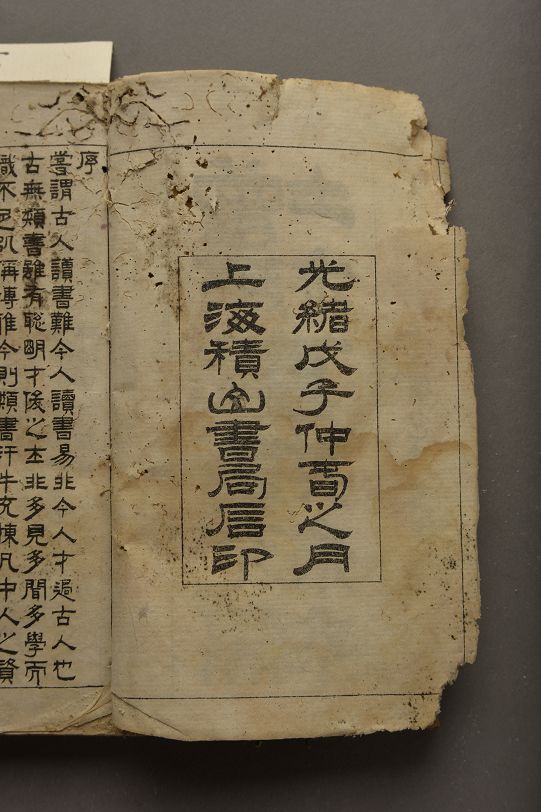 光緒戊子仲夏之月
上海積山書局石印
序
嘗謂古人讀書難今人讀書易非今人才過古人也
古無類書雖有聰明才俊之士非多見多聞多學而
識不足以稱博雅今則類書汗牛充棟凡中人之資